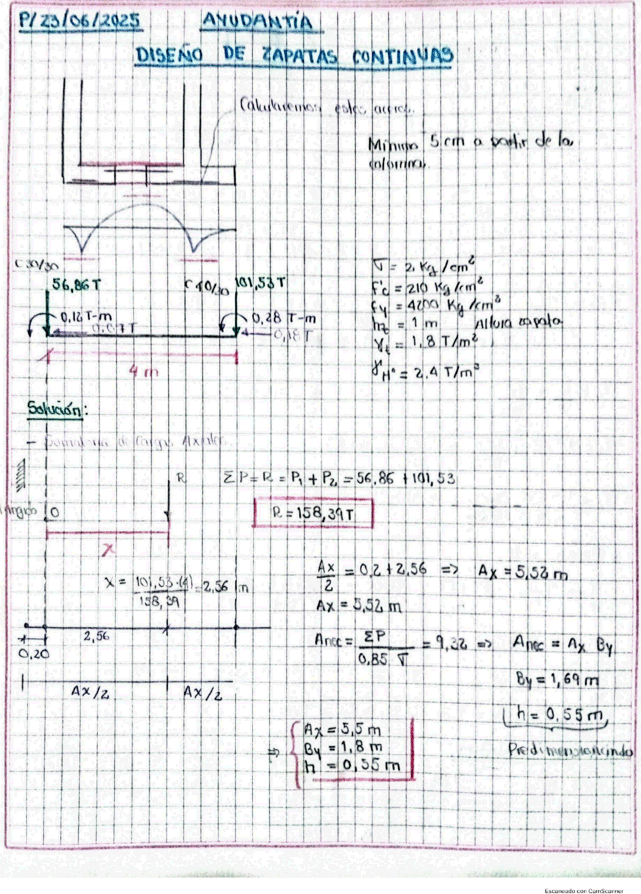 P/23/06/2025 AYUDANTÍA
DISEÑO DE ZAPATAS CONTINUAS
Calcularemos estos aceros.
Mínimo 5 cm a partir de la
columna.
C 30/30
56,86 T
C 40/30
101,53 T
0,12 T-m
0,07 T
0,28 T-m
0,18 T
4 m
σ = 2 Kg/cm²
F'c = 210 Kg/cm²
fy = 4200 Kg/cm²
hz = 1 m Altura zapata
γt = 1,8 T/m²
γH° = 2.4 T/m³
Solución:
- Sumatoria de Cargas Axiales.
R
ΣP = R = P₁ + P₂ = 56,86 + 101,53
O
R = 158,39 T
X
X = 101,53·(4) / 158,39 = 2,56 m
Ax/2 = 0,2 + 2,56 => Ax = 5,52 m
Ax = 5,52 m
2,56
0,20
Anec = ΣP / 0,85 σ = 9,32 => Anec = Ax By
By = 1,69 m
Ax/2 Ax/2
h = 0,55 m
Predimensionando
=> Ax = 5,5 m
By = 1,8 m
h = 0,55 m
Escaneado con CamScanner